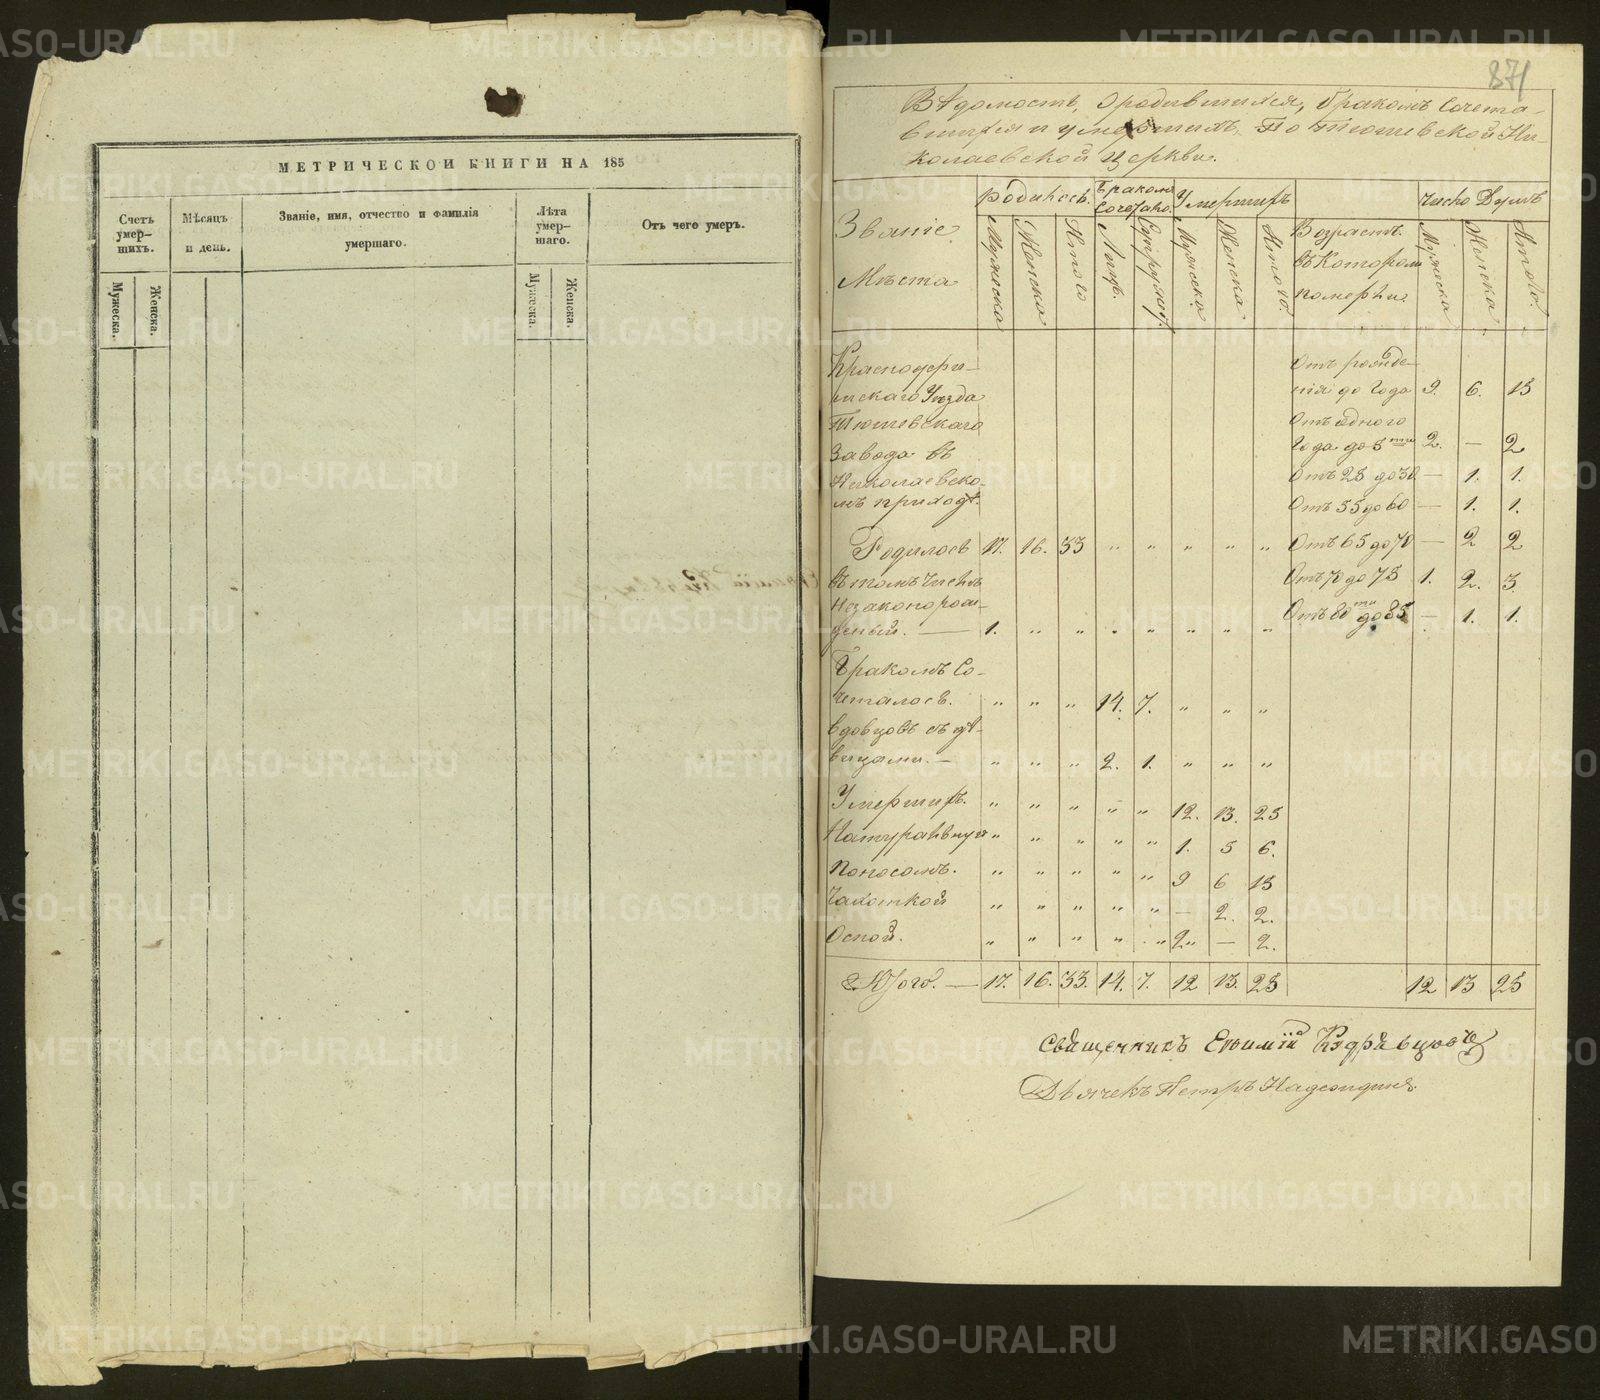 МЕТРИЧЕСКОЙ КНИГИ НА 185
Счетъ умер-шихъ.
Мѣсяцъ и день.
Званіе, имя, отчество и фамилія умершаго.
Лѣта умер-шаго.
Отъ чего умеръ.
Мужеска.
Женска.
Мужеска.
Женска.
871
Вѣдомость, о родившихся, бракомъ сочета-
вшихся и умершихъ, По Тюшевской Ни-
колаевской церкви.
Званіе Мѣста
Родилось.
Бракомъ Сочетано.
Умершихъ
Возрастъ въ которомъ померъли
Число Душъ
Мужеска
Женска
Итого
Лицъ.
Супружест.
Мужеска.
Женска
Итого.
Мужеска
Женска
Итого.
Красноуфи-
мскаго Уѣзда
Тюшевскаго
Завода въ
Николаевско-
мъ приходѣ.
Родилось 17. 16. 33 " " " " "
въ томъ числѣ
Незаконорож-
деный. — 1. " " " " " " "
Бракомъ Со-
четалось. " " " 14. 7. " " "
вдовцовъ съ дѣ-
вицами. — " " " 2. 1. " " "
Умершихъ. " " " " " 12. 13. 25
Натуральную " " " " " 1. 5 6.
Поносомъ. " " " " " 9 6 15
Чахоткой " " " " " — 2. 2.
Оспой. " " " " " 2 " — 2.
Отъ рожде-
нія до Года 9. 6. 15
Отъ одного
Года до 5ти 2. — 2
Отъ 25 до 30 — 1. 1.
Отъ 55 до 60 — 1. 1.
Отъ 65 до 70 — 2 2
Отъ 70 до 75 1. 2. 3
Отъ 80ти до 85 — 1. 1.
Итого. — 17. 16. 33. 14. 7. 12 13. 25 12 13 25
Священникъ Евфимій Кудрявцовъ
Дьячекъ Петръ
METRIKI.GASO-URAL.RU